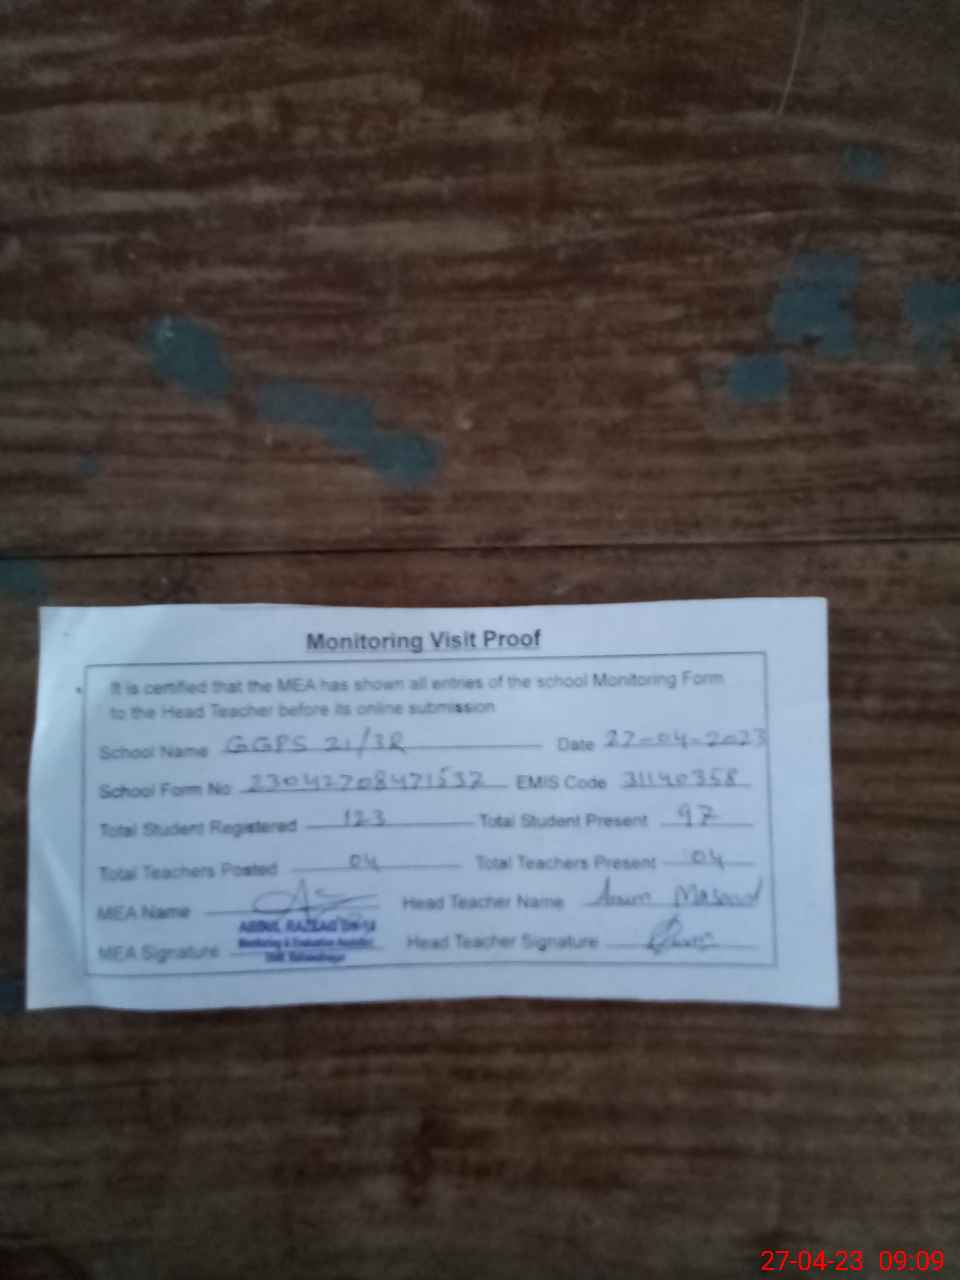 Monitoring Visit Proof
It is certified that the MEA has shown all entries of the school Monitoring Form
to the Head Teacher before its online submission
School Name GGPS 21/3R Date 27-04-2023
School Form No 23042708471537 EMIS Code 31140358
Total Student Registered 123 Total Student Present 97
Total Teachers Posted 04 Total Teachers Present 04
MEA Name Head Teacher Name Masood
ABDUL RAZZAQ
Monitoring & Evaluation Assistant
MEA Signature Head Teacher Signature
27-04-23 09:09